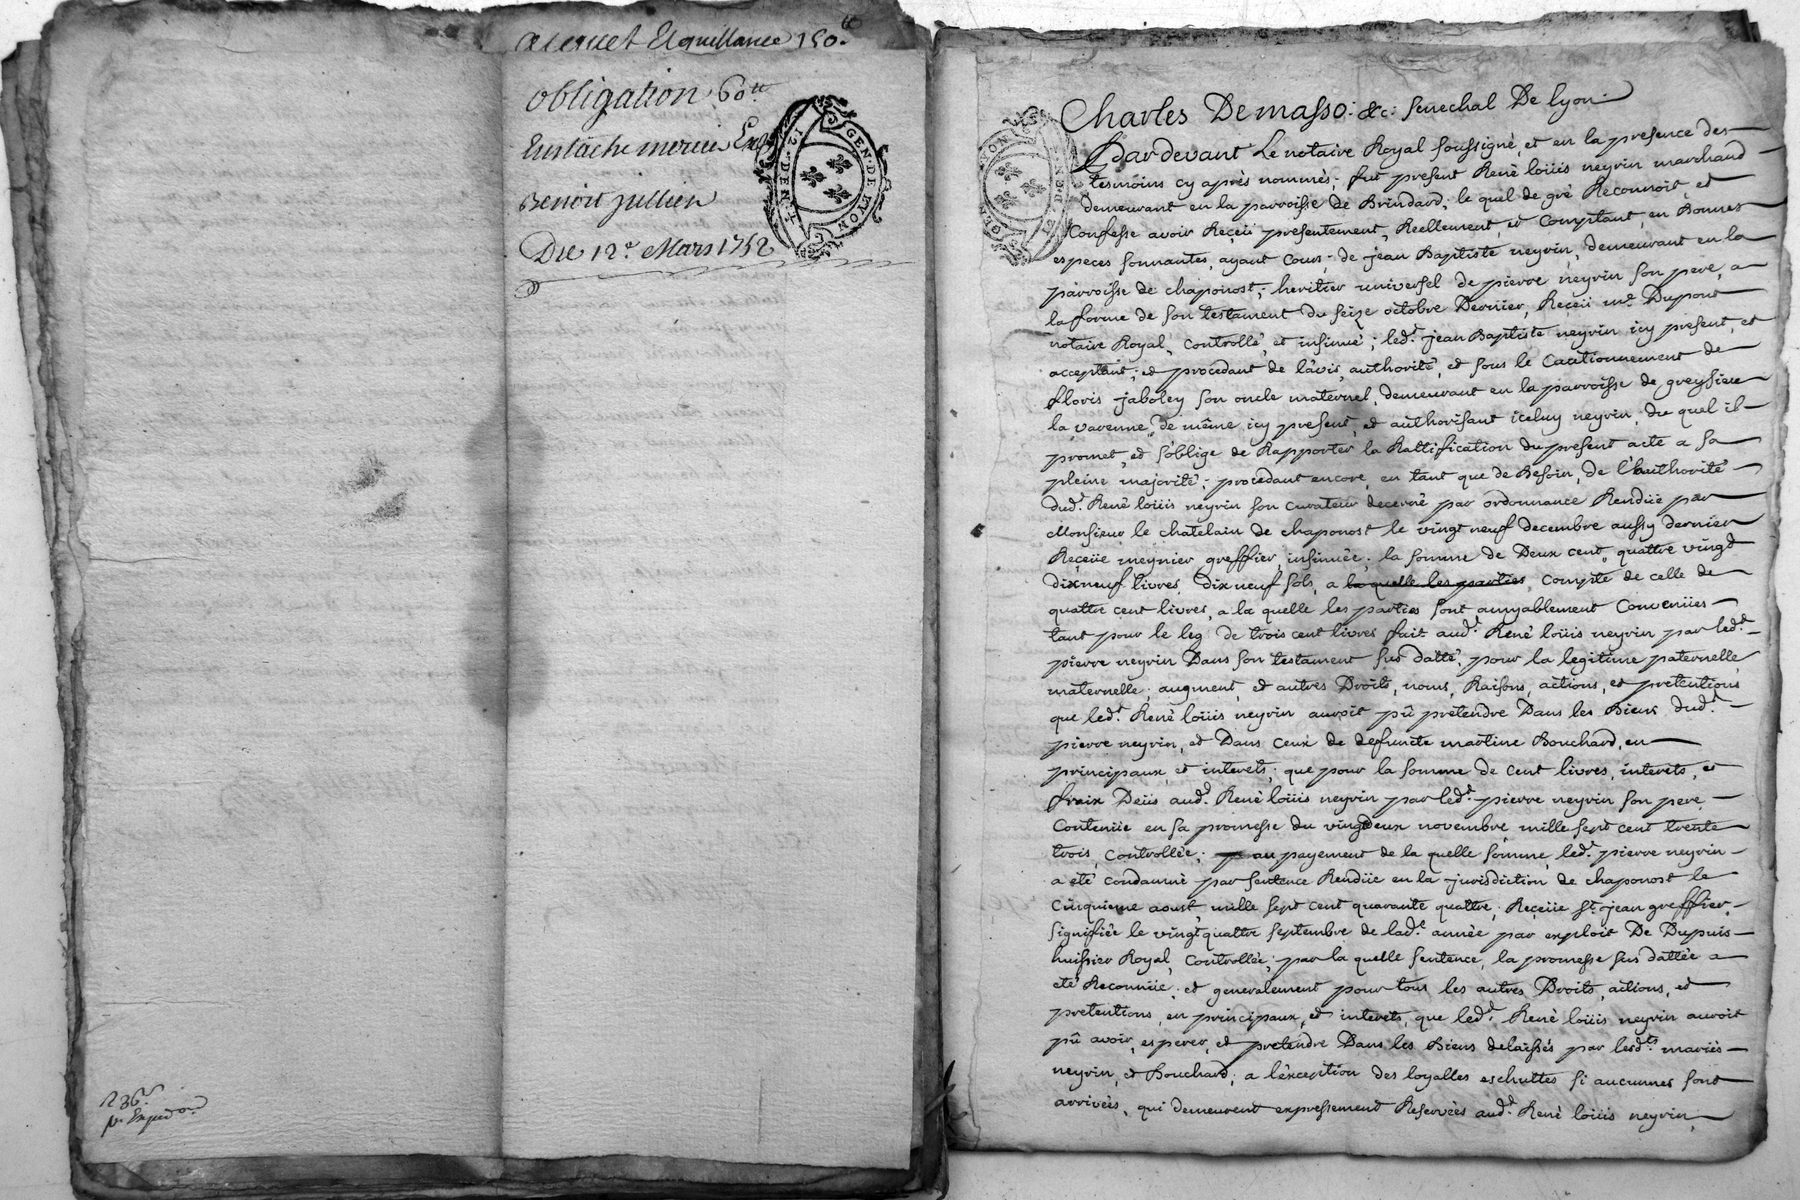 acquet Et quittance 150.tt
obligation 60.tt
Eustache mercier
Benoit jullien
Du 12e. Mars 1752
GEN. DE LYON
12. DEN.
Charles De masso: &c: Senechal De lyon
Pardevant Le notaire Royal soussigné, et en la presence des
tesmoins cy après nommés; fut present René loüis neyrin marchand
demeurant en la parroisse de Brindard; le quel de gré Reconnoit, et
Confesse avoir Reçeü presentement, Reellement, et Comptant, en Bonnes
especes sonnantes, ayant cours; de jean Baptiste neyrin, demeurant en la
parroisse de chaponost; heritier universel de pierre neyrin son pere, a
la forme de son testament du seize octobre Dernier, Receü me. Dupont
notaire Royal, controllé, et insinué; led.t jean Baptiste neyrin icy present, et
acceptant; et procedant de l'avis, authorité, et sous le Cautionnement de
floris jaboley son oncle maternel, demeurant en la parroisse de greysieu
la varenne, de même icy present, et authorisant iceluy neyrin, du quel il
promet, et s'oblige de Rapporter la Rattification du present acte a sa
pleine majorité; procedant encore, en tant que de Besoin, de l'authorité
dud.t René loüis neyrin son curateur decerné par ordonnance Rendüe par
Monsieur le chatelain de chaponost le vingt neuf decembre aussy dernier
Reçeüe meynier greffier, insinuée; la somme de Deux cent quattre vingt
dixneuf livres, dixneuf sols, a la quelle les parties, compte de celle de
quattre cent livres, a la quelle les parties sont amyablement Convenües
tant pour le leg de trois cent livres fait aud.t René loüis neyrin par led.t
pierre neyrin Dans son testament sus datté, pour la legitime paternelle
maternelle, augment, et autres Droits, noms, Raisons, actions, et pretentions
que led.t René loüis neyrin auroit pû pretendre Dans les Biens dud.t
pierre neyrin, et Dans ceux de defuncte martine Bouchard, en
principaux, et interets; que pour la somme de cent livres, interets, et
fraix Deüs aud.t René loüis neyrin par led.t pierre neyrin son pere
Contenüe en sa promesse du vingtdeux novembre mille sept cent trente
trois, controllée; au payement de la quelle somme, led.t pierre neyrin
a eté condamné par sentence Rendüe en la jurisdiction de chaponost le
cinquieme aoust mille sept cent quarante quattre, Reçeüe St. jean greffier,
signifiée le vingt quattre septembre de lad.te année par exploit De Dupuis
huissier Royal, Controllée; par la quelle sentence, la promesse sus dattée a
eté Reconnüe; et generalement pour tous les autres Droits, actions, et
pretentions, en principaux, et interets, que led.t René loüis neyrin auroit
pû avoir, esperer, et pretendre Dans les Biens delaissés par lesd.ts mariés
neyrin, et Bouchard; a l'exception des loyalles eschuttes si aucunnes sont
arrivées, qui demeurent expressement Reservées aud.t René loüis neyrin,